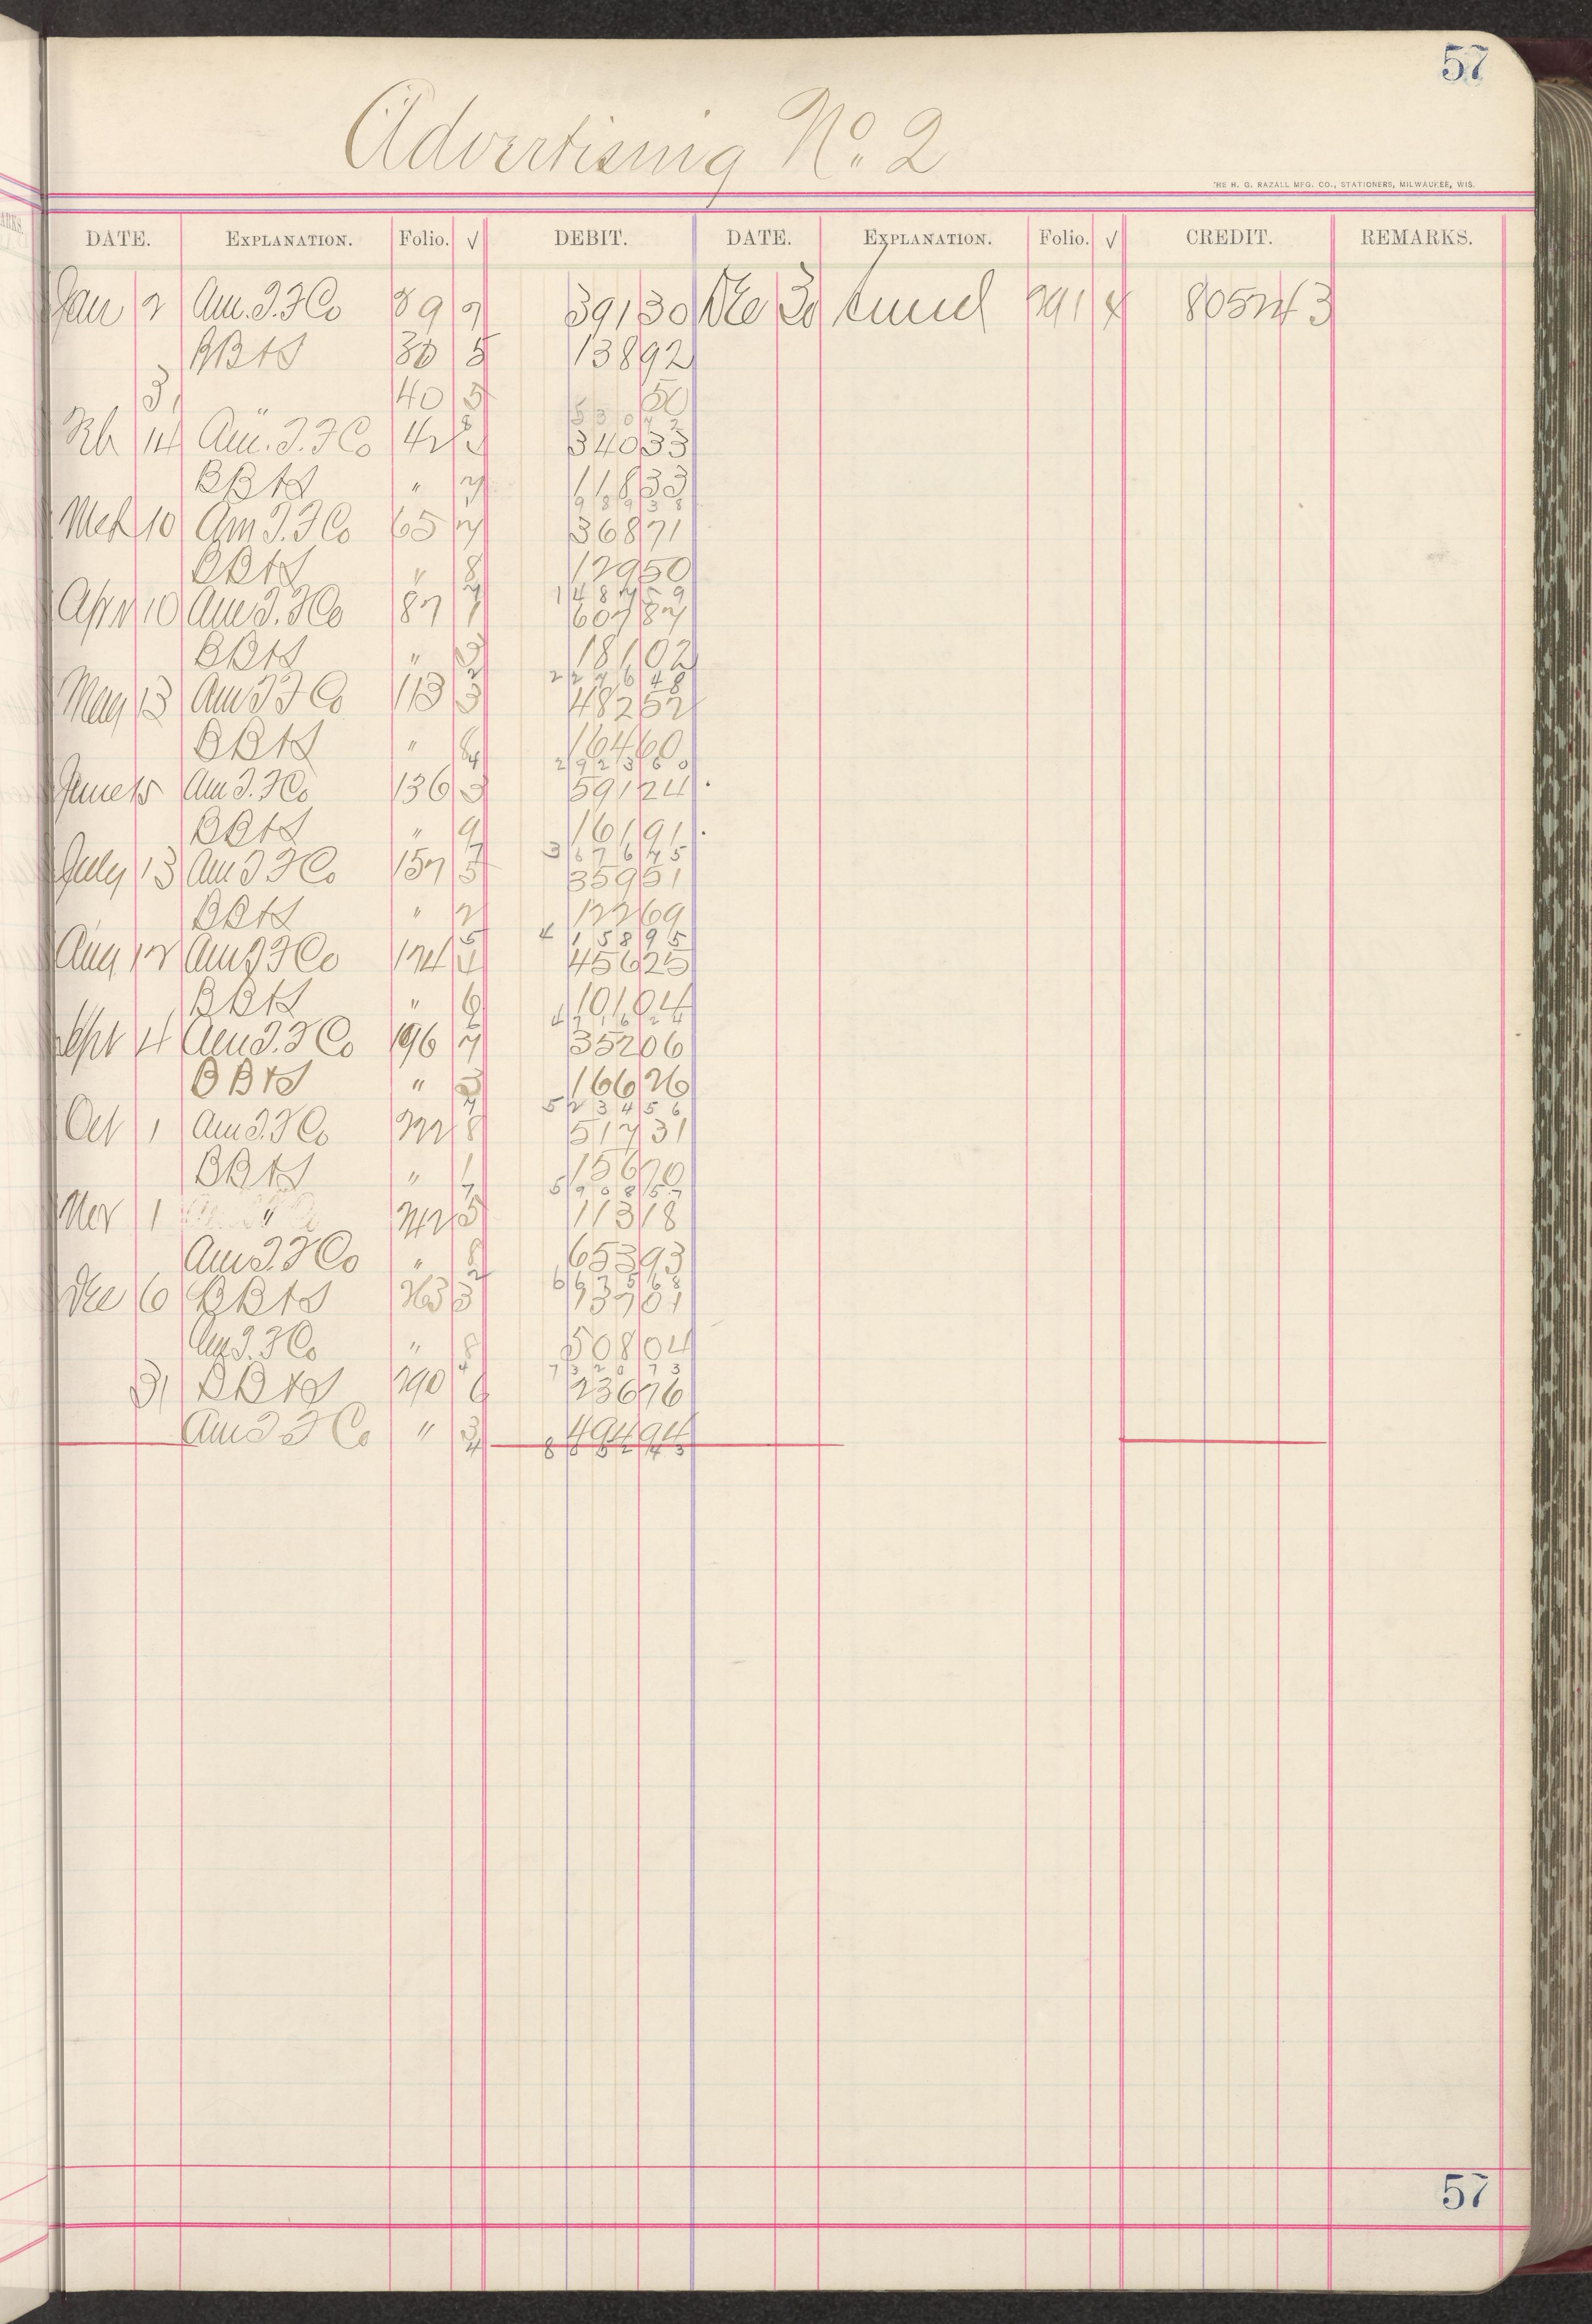 57
Advertising No. 2
THE H. G. RAZALL MFG. CO., STATIONERS, MILWAUKEE, WIS.
DATE. EXPLANATION. Folio. √ DEBIT. DATE. EXPLANATION. Folio. √ CREDIT. REMARKS.
Jan 2 Am. T. F Co 39 7 391 30 Dec 30 291 4 8052 43
BB&S 30 5 138 92
31 40 5 50
530 72
Feb 14 Am. T. F Co 42 340 33
BB&S " 7 118 33
989 38
Mch 10 Am T. F Co 65 7 368 71
BB&S " 8 129 50
1487 59
Apr 10 Am T. F Co 87 1 607 87
BB&S " 3 181 02
2276 48
May 13 Am T F Co 113 3 482 52
BB&S " 6 164 60
2923 60
June 15 Am T. F Co 136 3 591 24
BB&S " 9 161 91
3676 75
July 13 Am T F Co 157 5 359 51
BB&S " 2 122 69
4158 95
Aug 12 Am T F Co 174 4 456 25
BB&S " 6 101 04
4716 24
Sept 4 Am T. F Co 196 7 352 06
BB&S " 3 166 26
5234 56
Oct 1 Am T. F Co 222 8 517 31
BB&S " 1 156 70
5908 57
Nov 1 " 242 5 113 18
Am T. F Co " 8 653 93
6675 68
Dec 6 BB&S 263 3 137 01
Am T. F Co " 8 508 04
7320 73
31 BB&S 290 6 236 76
Am T F Co " 3 494 94
8052 43
57